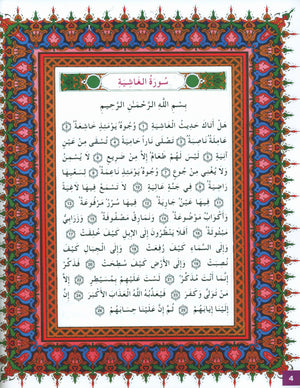 سُورَةُ الْغَاشِيَةِ
بِسْمِ اللَّهِ الرَّحْمَٰنِ الرَّحِيمِ
هَلْ أَتَاكَ حَدِيثُ الْغَاشِيَةِ ﴿١﴾ وُجُوهٌ يَوْمَئِذٍ خَاشِعَةٌ ﴿٢﴾
عَامِلَةٌ نَاصِبَةٌ ﴿٣﴾ تَصْلَى نَاراً حَامِيَةً ﴿٤﴾ تُسْقَى مِنْ عَيْنٍ
آنِيَةٍ ﴿٥﴾ لَيْسَ لَهُمْ طَعَامٌ إِلَّا مِنْ ضَرِيعٍ ﴿٦﴾ لَا يُسْمِنُ
وَلَا يُغْنِي مِنْ جُوعٍ ﴿٧﴾ وُجُوهٌ يَوْمَئِذٍ نَاعِمَةٌ ﴿٨﴾ لِسَعْيِهَا
رَاضِيَةٌ ﴿٩﴾ فِي جَنَّةٍ عَالِيَةٍ ﴿١٠﴾ لَا تَسْمَعُ فِيهَا لَاغِيَةً
﴿١١﴾ فِيهَا عَيْنٌ جَارِيَةٌ ﴿١٢﴾ فِيهَا سُرُرٌ مَرْفُوعَةٌ ﴿١٣﴾
وَأَكْوَابٌ مَوْضُوعَةٌ ﴿١٤﴾ وَنَمَارِقُ مَصْفُوفَةٌ ﴿١٥﴾ وَزَرَابِيُّ
مَبْثُوثَةٌ ﴿١٦﴾ أَفَلَا يَنْظُرُونَ إِلَى الْإِبِلِ كَيْفَ خُلِقَتْ ﴿١٧﴾
وَإِلَى السَّمَاءِ كَيْفَ رُفِعَتْ ﴿١٨﴾ وَإِلَى الْجِبَالِ كَيْفَ
نُصِبَتْ ﴿١٩﴾ وَإِلَى الْأَرْضِ كَيْفَ سُطِحَتْ ﴿٢٠﴾ فَذَكِّرْ
إِنَّمَا أَنْتَ مُذَكِّرٌ ﴿٢١﴾ لَسْتَ عَلَيْهِمْ بِمُسَيْطِرٍ ﴿٢٢﴾ إِلَّا
مَنْ تَوَلَّى وَكَفَرَ ﴿٢٣﴾ فَيُعَذِّبُهُ اللَّهُ الْعَذَابَ الْأَكْبَرَ ﴿٢٤﴾ إِنَّ
إِلَيْنَا إِيَابَهُمْ ﴿٢٥﴾ ثُمَّ إِنَّ عَلَيْنَا حِسَابَهُمْ ﴿٢٦﴾
4